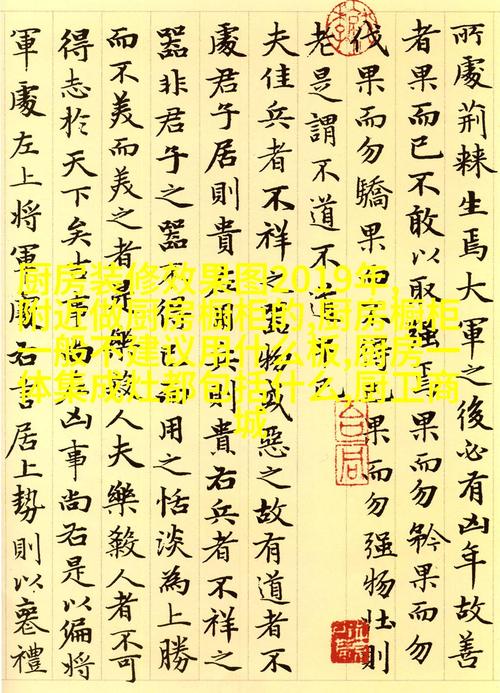 所處荊棘生焉大軍之後必有凶年故善
者果而已不敢以取強焉果而勿矜果而勿
伐果而勿驕果而不果而勿强物壯則
老是謂不道不道
夫佳兵者不祥之器物或惡之故有道者不
處君子居則貴左用兵則貴右兵者不祥之
器非君子之器不得已而用之恬淡為上勝
而不美而美之者是樂殺人夫樂殺人者不可
得志於天下矣凶事尚右是以偏將
軍處左上將軍處右言居上勢則以喪禮
厨房装修效果图2019年,
附近做厨房橱柜的,厨房橱柜
一般不建议用什么板,厨房一
体集成灶都包括什么,厨卫商
城